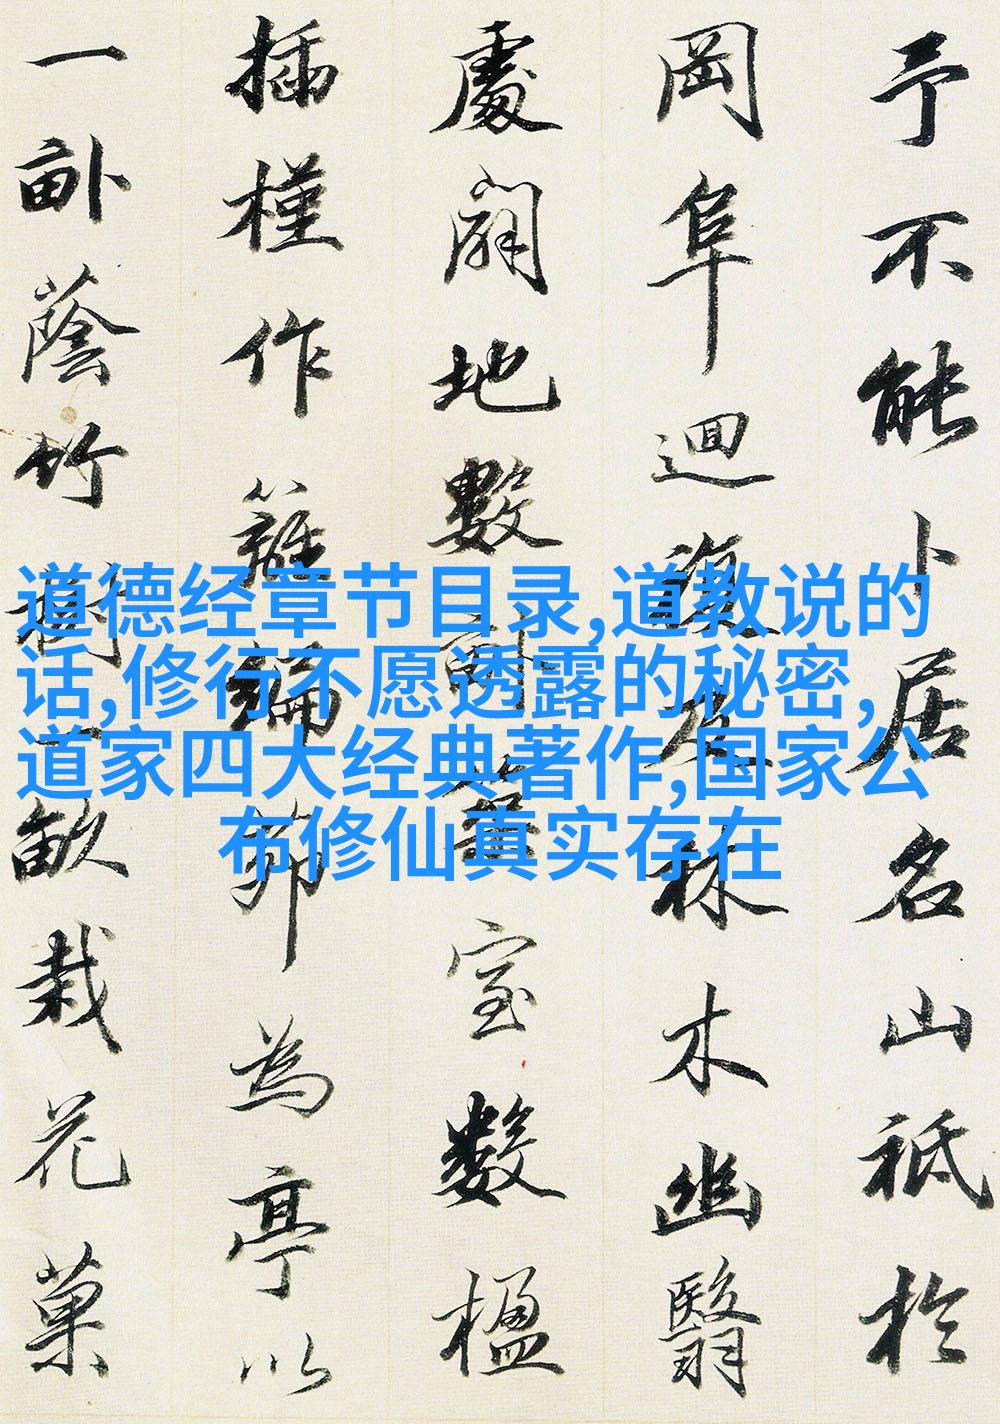 予不能卜居名山祗於
岡阜迴複及林木幽翳
處闢地數畝築室數楹
插槿作籬編茆為亭以
一畝蔭竹樹一畝栽花菓
道德经章节目录,道教说的
话,修行不愿透露的秘密,
道家四大经典著作,国家公
布修仙真实存在